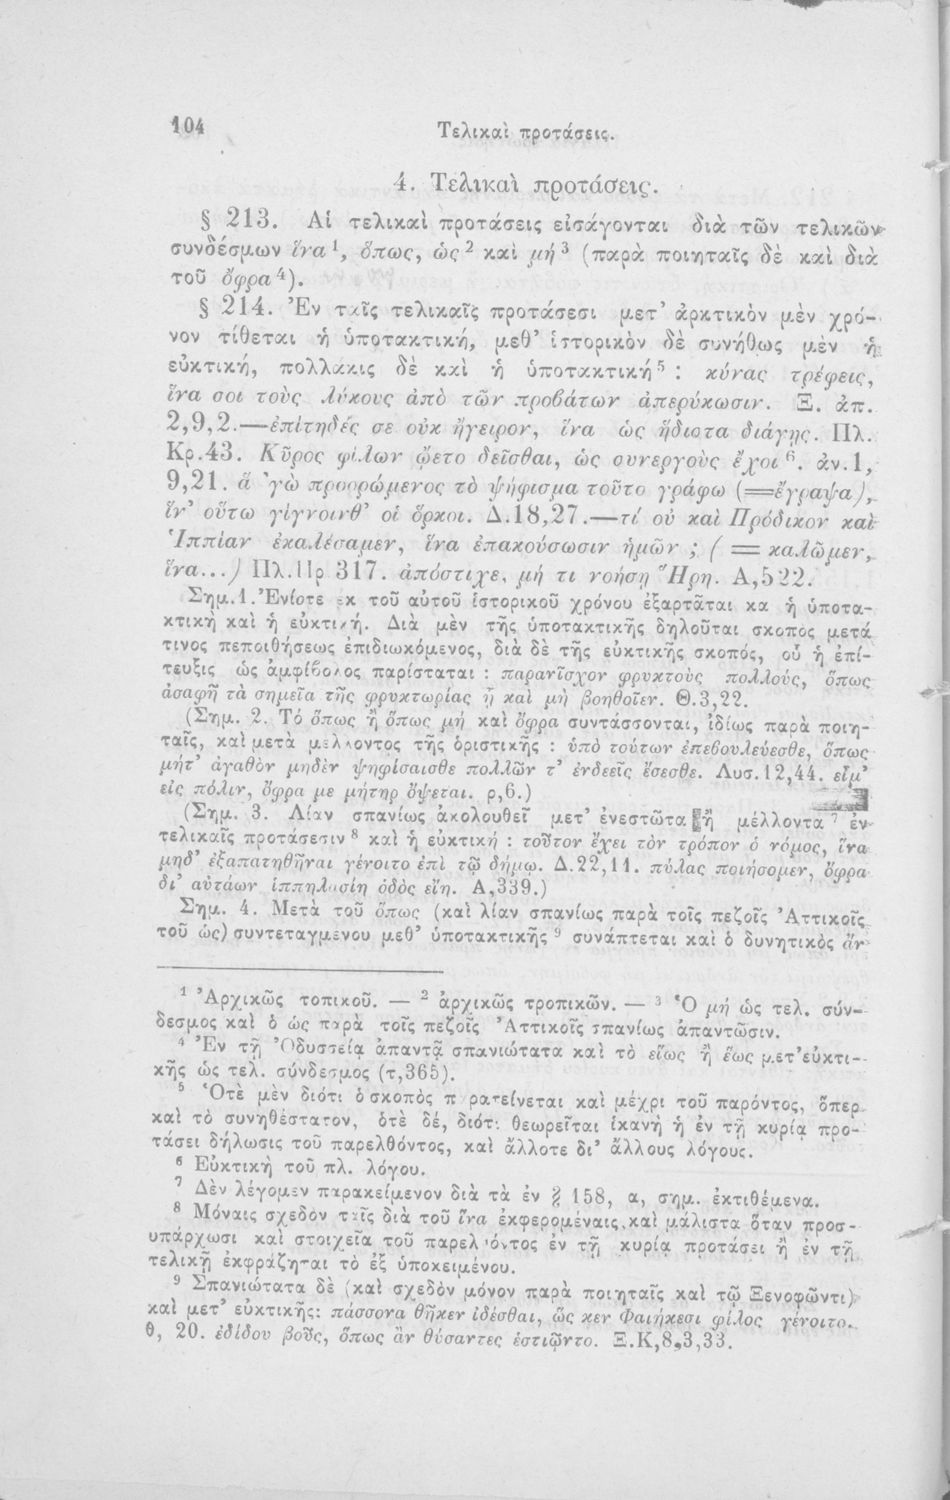 104
Τελικαὶ προτάσεις.
4. Τελικαὶ προτάσεις.
§ 213. Αἱ τελικαὶ προτάσεις εἰσάγονται διὰ τῶν τελικῶν
συνδέσμων ἵνα ¹, ὅπως, ὡς ² καὶ μή ³ (παρὰ ποιηταῖς δὲ καὶ διὰ
τοῦ ὄφρα ⁴).
§ 214. Ἐν ταῖς τελικαῖς προτάσεσι μετ’ ἀρκτικὸν μὲν χρό-
νον τίθεται ἡ ὑποτακτική, μεθ’ ἱστορικὸν δὲ συνήθως μὲν ἡ
εὐκτική, πολλάκις δὲ καὶ ἡ ὑποτακτική ⁵ : κύνας τρέφεις,
ἵνα σοι τοὺς λύκους ἀπὸ τῶν προβάτων ἀπερύκωσιν. Ξ. ἀπ.
2,9,2.—ἐπίτηδές σε οὐκ ἤγειρον, ἵνα ὡς ἥδιστα διάγῃς. Πλ.
Κρ.43. Κῦρος φίλων ᾤετο δεῖσθαι, ὡς συνεργοὺς ἔχοι ⁶. ἀν.1,
9,21. ἃ ’γὼ προορώμενος τὸ ψήφισμα τοῦτο γράφω (=ἔγραψα),
ἵν’ οὕτω γίγνοινθ’ οἱ ὅρκοι. Δ.18,27.—τί οὐ καὶ Πρόδικον καὶ
Ἱππίαν ἐκαλέσαμεν, ἵνα ἐπακούσωσιν ἡμῶν ; ( = καλῶμεν,
ἵνα...) Πλ.Πρ 317. ἀπόστιχε, μή τι νοήσῃ Ἥρη. Α,522.
Σημ.1. Ἐνίοτε ἐκ τοῦ αὐτοῦ ἱστορικοῦ χρόνου ἐξαρτᾶται κα ἡ ὑποτα-
κτικὴ καὶ ἡ εὐκτική. Διὰ μὲν τῆς ὑποτακτικῆς δηλοῦται σκοπὸς μετά
τινος πεποιθήσεως ἐπιδιωκόμενος, διὰ δὲ τῆς εὐκτικῆς σκοπός, οὗ ἡ ἐπί-
τευξις ὡς ἀμφίβολος παρίσταται : παρανῖσχον φρυκτοὺς πολλούς, ὅπως
ἀσαφῆ τὰ σημεῖα τῆς φρυκτωρίας ᾖ καὶ μὴ βοηθοῖεν. Θ.3,22.
(Σημ. 2. Τό ὅπως ἢ ὅπως μή καὶ ὄφρα συντάσσονται, ἰδίως παρὰ ποιη-
ταῖς, καὶ μετὰ μέλλοντος τῆς ὁριστικῆς : ὑπὸ τούτων ἐπεβουλεύεσθε, ὅπως
μήτ’ ἀγαθὸν μηδὲν ψηφίσαισθε πολλῶν τ’ ἐνδεεῖς ἔσεσθε. Λυσ.12,44. εἶμ’
εἰς πόλιν, ὄφρα με μήτηρ ὄψεται. ρ,6.)
(Σημ. 3. Λίαν σπανίως ἀκολουθεῖ μετ’ ἐνεστῶτα ἢ μέλλοντα ⁷ ἐν
τελικαῖς προτάσεσιν ⁸ καὶ ἡ εὐκτική : τοῦτον ἔχει τὸν τρόπον ὁ νόμος, ἵνα
μηδ’ ἐξαπατηθῆναι γένοιτο ἐπὶ τῷ δήμῳ. Δ.22,11. πύλας ποιήσομεν, ὄφρα
δι’ αὐτάων ἱππηλασίη ὁδὸς εἴη. Α,339.)
Σημ. 4. Μετὰ τοῦ ὅπως (καὶ λίαν σπανίως παρὰ τοῖς πεζοῖς Ἀττικοῖς
τοῦ ὡς) συντεταγμένου μεθ’ ὑποτακτικῆς ⁹ συνάπτεται καὶ ὁ δυνητικὸς ἄν
¹ Ἀρχικῶς τοπικοῦ. — ² ἀρχικῶς τροπικῶν. — ³ Ὁ μή ὡς τελ. σύν-
δεσμος καὶ ὁ ὡς παρὰ τοῖς πεζοῖς Ἀττικοῖς σπανίως ἀπαντῶσιν.
⁴ Ἐν τῇ Ὀδυσσείᾳ ἀπαντᾷ σπανιώτατα καὶ τὸ εἵως ἢ ἕως μετ’εὐκτι-
κῆς ὡς τελ. σύνδεσμος (τ,365).
⁵ Ὁτὲ μὲν διότι ὁ σκοπὸς π ρατείνεται καὶ μέχρι τοῦ παρόντος, ὅπερ
καὶ τὸ συνηθέστατον, ὁτὲ δέ, διότι θεωρεῖται ἱκανὴ ἡ ἐν τῇ κυρίᾳ προ-
τάσει δήλωσις τοῦ παρελθόντος, καὶ ἄλλοτε δι’ ἄλλους λόγους.
⁶ Εὐκτικὴ τοῦ πλ. λόγου.
⁷ Δὲν λέγομεν παρακείμενον διὰ τὰ ἐν § 158, α, σημ. ἐκτιθέμενα.
⁸ Μόναις σχεδὸν ταῖς διὰ τοῦ ἵνα ἐκφερομέναις, καὶ μάλιστα ὅταν προσ-
υπάρχωσι καὶ στοιχεῖα τοῦ παρελθόντος ἐν τῇ κυρίᾳ προτάσει ἢ ἐν τῇ
τελικῇ ἐκφράζηται τὸ ἐξ ὑποκειμένου.
⁹ Σπανιώτατα δὲ (καὶ σχεδὸν μόνον παρὰ ποιηταῖς καὶ τῷ Ξενοφῶντι)
καὶ μετ’ εὐκτικῆς: πάσσονα θῆκεν ἰδέσθαι, ὥς κεν Φαιήκεσι φίλος γένοιτο.
θ, 20. ἐδίδου βοῦς, ὅπως ἂν θύσαντες ἑστιῷντο. Ξ.Κ,8,3,33.